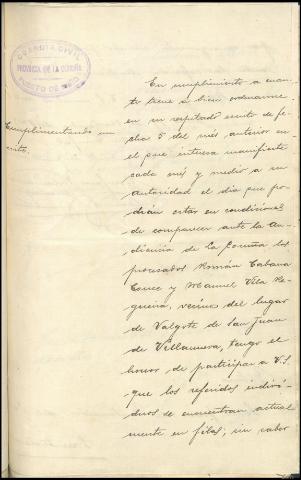 GUARDIA CIVIL
PROVINCIA DE LA CORUÑA
PUESTO DE
Cumplimentando un
escrito
En cumplimiento a cuan-
to tiene a bien ordenarme
en su respetado escrito de fe-
cha 5 del mes anterior en
el que interesa manifieste
cada mes y medio a su
autoridad el día que po-
drán estar en condiciones
de comparecer ante la Au-
diencia de La Coruña los
procesados Román Cabana
y Manuel Vila Re-
gueira, vecinos del lugar
de Valgote de San Juan
de Villanueva, tengo el
honor de participar a V.S.
que los referidos indivi-
duos se encuentran actual
mente en filas, sin saber